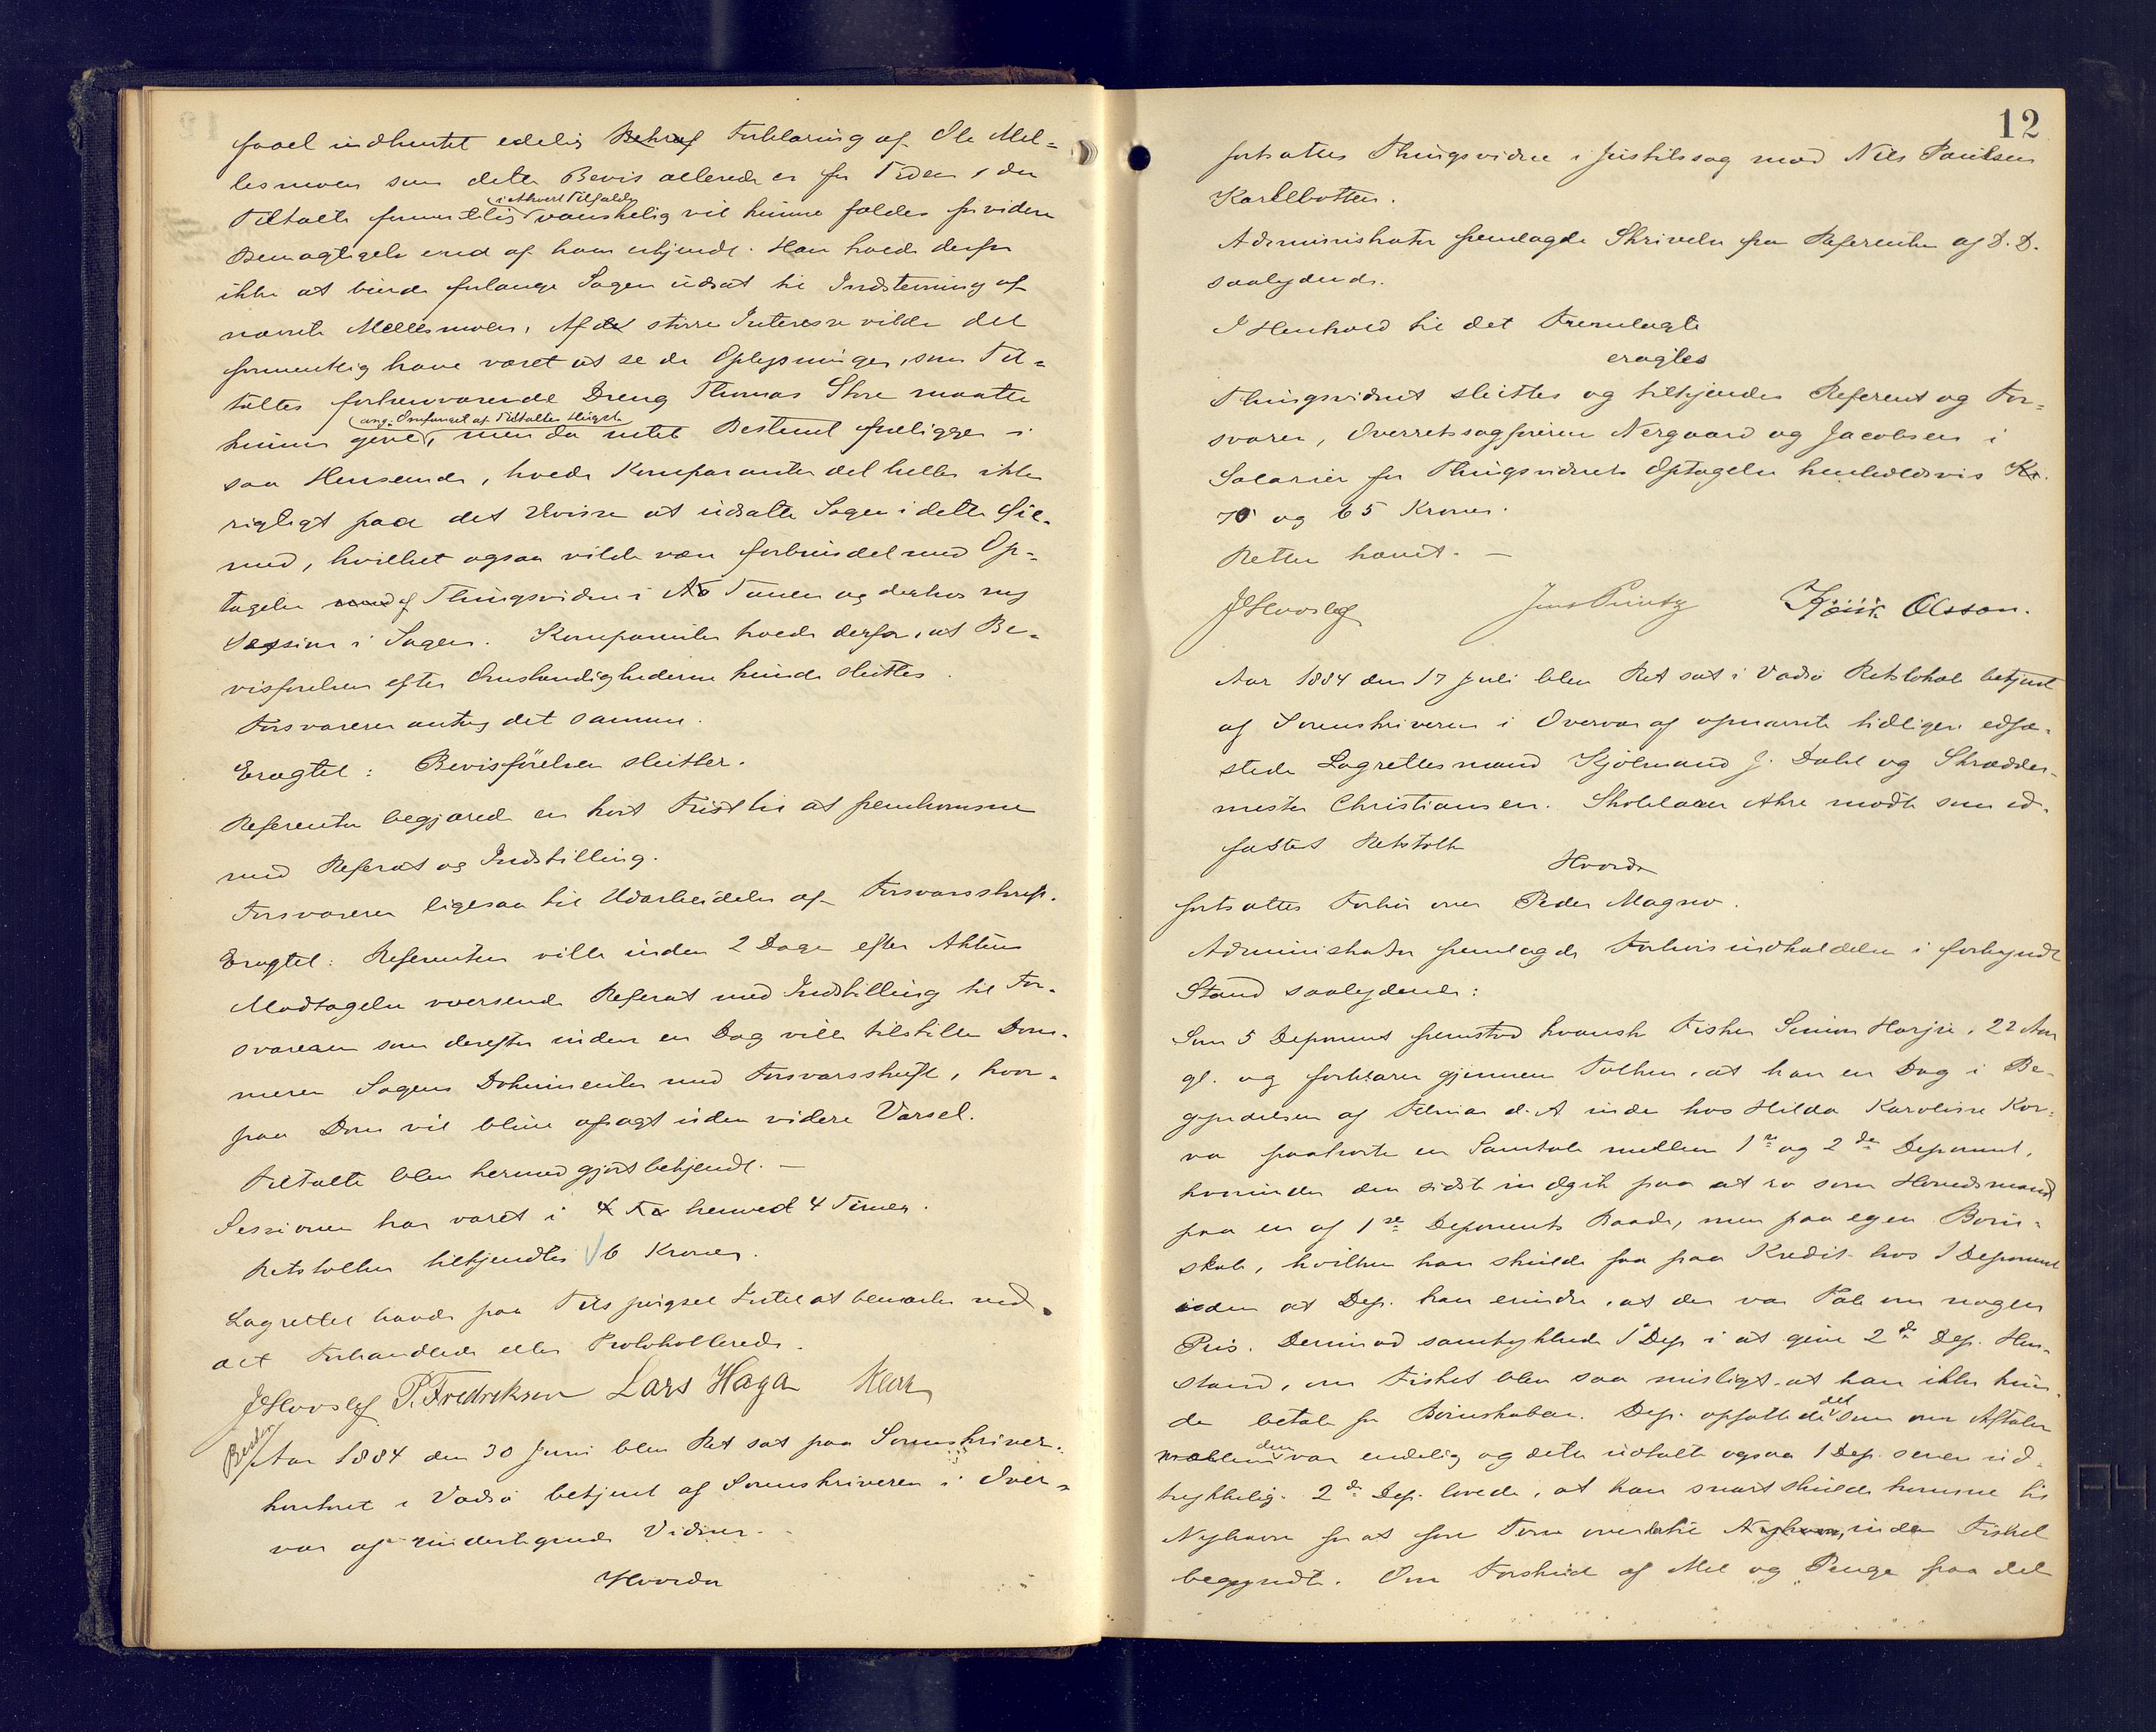 faael indhentet edelig Bekræf Forklaring af Ole Mel-
lesmoen som dette Bevis allerede er for Tiden, da
i ethvert Tilfælde
Tiltalte formentlig vanskelig vil kunne fældes for videre
Bemægtigelse end af ham erkjendt. Han havde derfor
ikke at forlange Sagen udsat til Indstevning af
nævnte Mellesmoen. Af de større Interesse vilde det
formentlig have været at se de Oplysninger, som Til-
taltes forhenværende Dreng Thomas Store maatte
ang. Omfanget af Tiltaltes
kunne give, men da intet Bestemt foreligger i
saa Henseende, havde Komparenten det heller ikke
rigtigt paa det Uvisse at udsætte Sagen i dette Øie-
med, hvilket ogsaa vilde være forbundet med Op-
tagelse af Thingsvidne i Tanen og derhos ny
Session i Sagen. Komparenten havde derfor, at Be-
visførelsen efter Omstændighederne kunde sluttes.
Forsvareren antog det samme.
Eragtet: Bevisførelsen slutter.
Referenten begjærede en kort Frist til at fremkomme
med Referat og Indstilling.
Forsvareren ligesaa til Udarbeidelse af Forsvarsskrift.
Eragtet: Referenten ville inden 2 Dage efter Aktens
Modtagelse oversende Referat med Indstilling til For-
svareren som derefter inden en Dag ville tilstille Dom-
meren Sagens Dokumenter med Forsvarsskrift, hvor-
paa Dom vil blive afsagt uden videre Varsel.
Tiltalte blev hermed gjort bekjendt. —
Sessionen har varet i henved 4 Timer.
Retstolken tilkjendtes 6 Kroner.
Lagrettet havde paa Tilspørgsel Intet at bemærke ved
det Forhandlede eller Protokollerede.
JHovslef P. Fredriksen Lars Haga
Aar 1884 den 30 Juni blev Ret sat paa Sorenskriver-
kontoret i Vadsø betjent af Sorenskriveren i Over-
vær af undertegnede Vidner.
Hvorda
12
fortsattes Thingsvidne i Justitssag mod Nils Paulsen
Karlbotten.
Administrator fremlagde Skrivelse fra Referenten af D.D.
saalydende.
I Henhold til det Fremlagte
eragtes
Thingsvidnet sluttes og tilkjendes Referent og For-
svarer, Overretssagførerne Nergaard og Jacobsen i
Salarier for Thingsvidnets Optagelse henholdsvis Kr.
70 og 65 Kroner.
Retten hævet. —
JHovslef Jens Printz Olsson.
Aar 1884 den 17 Juli blev Ret sat i Vadsø Retslokale betjent
af Sorenskriveren i Overvær af opnævnte tidligere edfæ-
stede Lagrettesmænd Kjøbmand J. Dahl og Skrædder-
mester Christiansen. Skolelærer Akre mødte som ed-
fæstet Retstolk
Hvorda
fortsattes Forhør over Peder Magno.
Administrator fremlagde Forhørsindkaldelsen i forkyndt
Stand saalydende:
Som 5 Deponent fremstod kvænsk Fisker Simon Harju, 22 Aar
gl. og forklarer gjennem Tolken, at han en Dag i Be-
gyndelsen af Februar d. A. inde hos Hilda Karoline Kor-
va paahørte en Samtale mellem 1ste og 2den Deponent,
hvorunder den sidste indgik paa at ro som Høvedsmand
paa en af 1ste Deponents Baade, men paa egen Børn-
skab, hvilken han skulde faa paa Kredit hos 1 Deponent
uden at Dep. kan erindre, at der var Tale om nogen
Pris. Derimod samtykkede 1 Dep i at give 2den Dep. Hen-
stand, om Fisket blev saa misligt at han ikke kun-
de betale for Børnskaben. Dep. opfattede det som om Aftalen
mellem dem var endelig og dette udtalte ogsaa 1 Dep. senere ud-
trykkelig. 2den Dep. lovede, at han snart skulde komme til
Nyhavn for at føre over til Nyhavn, inden Fisket
begyndte. Om Forskud af Mel og Penge paa det